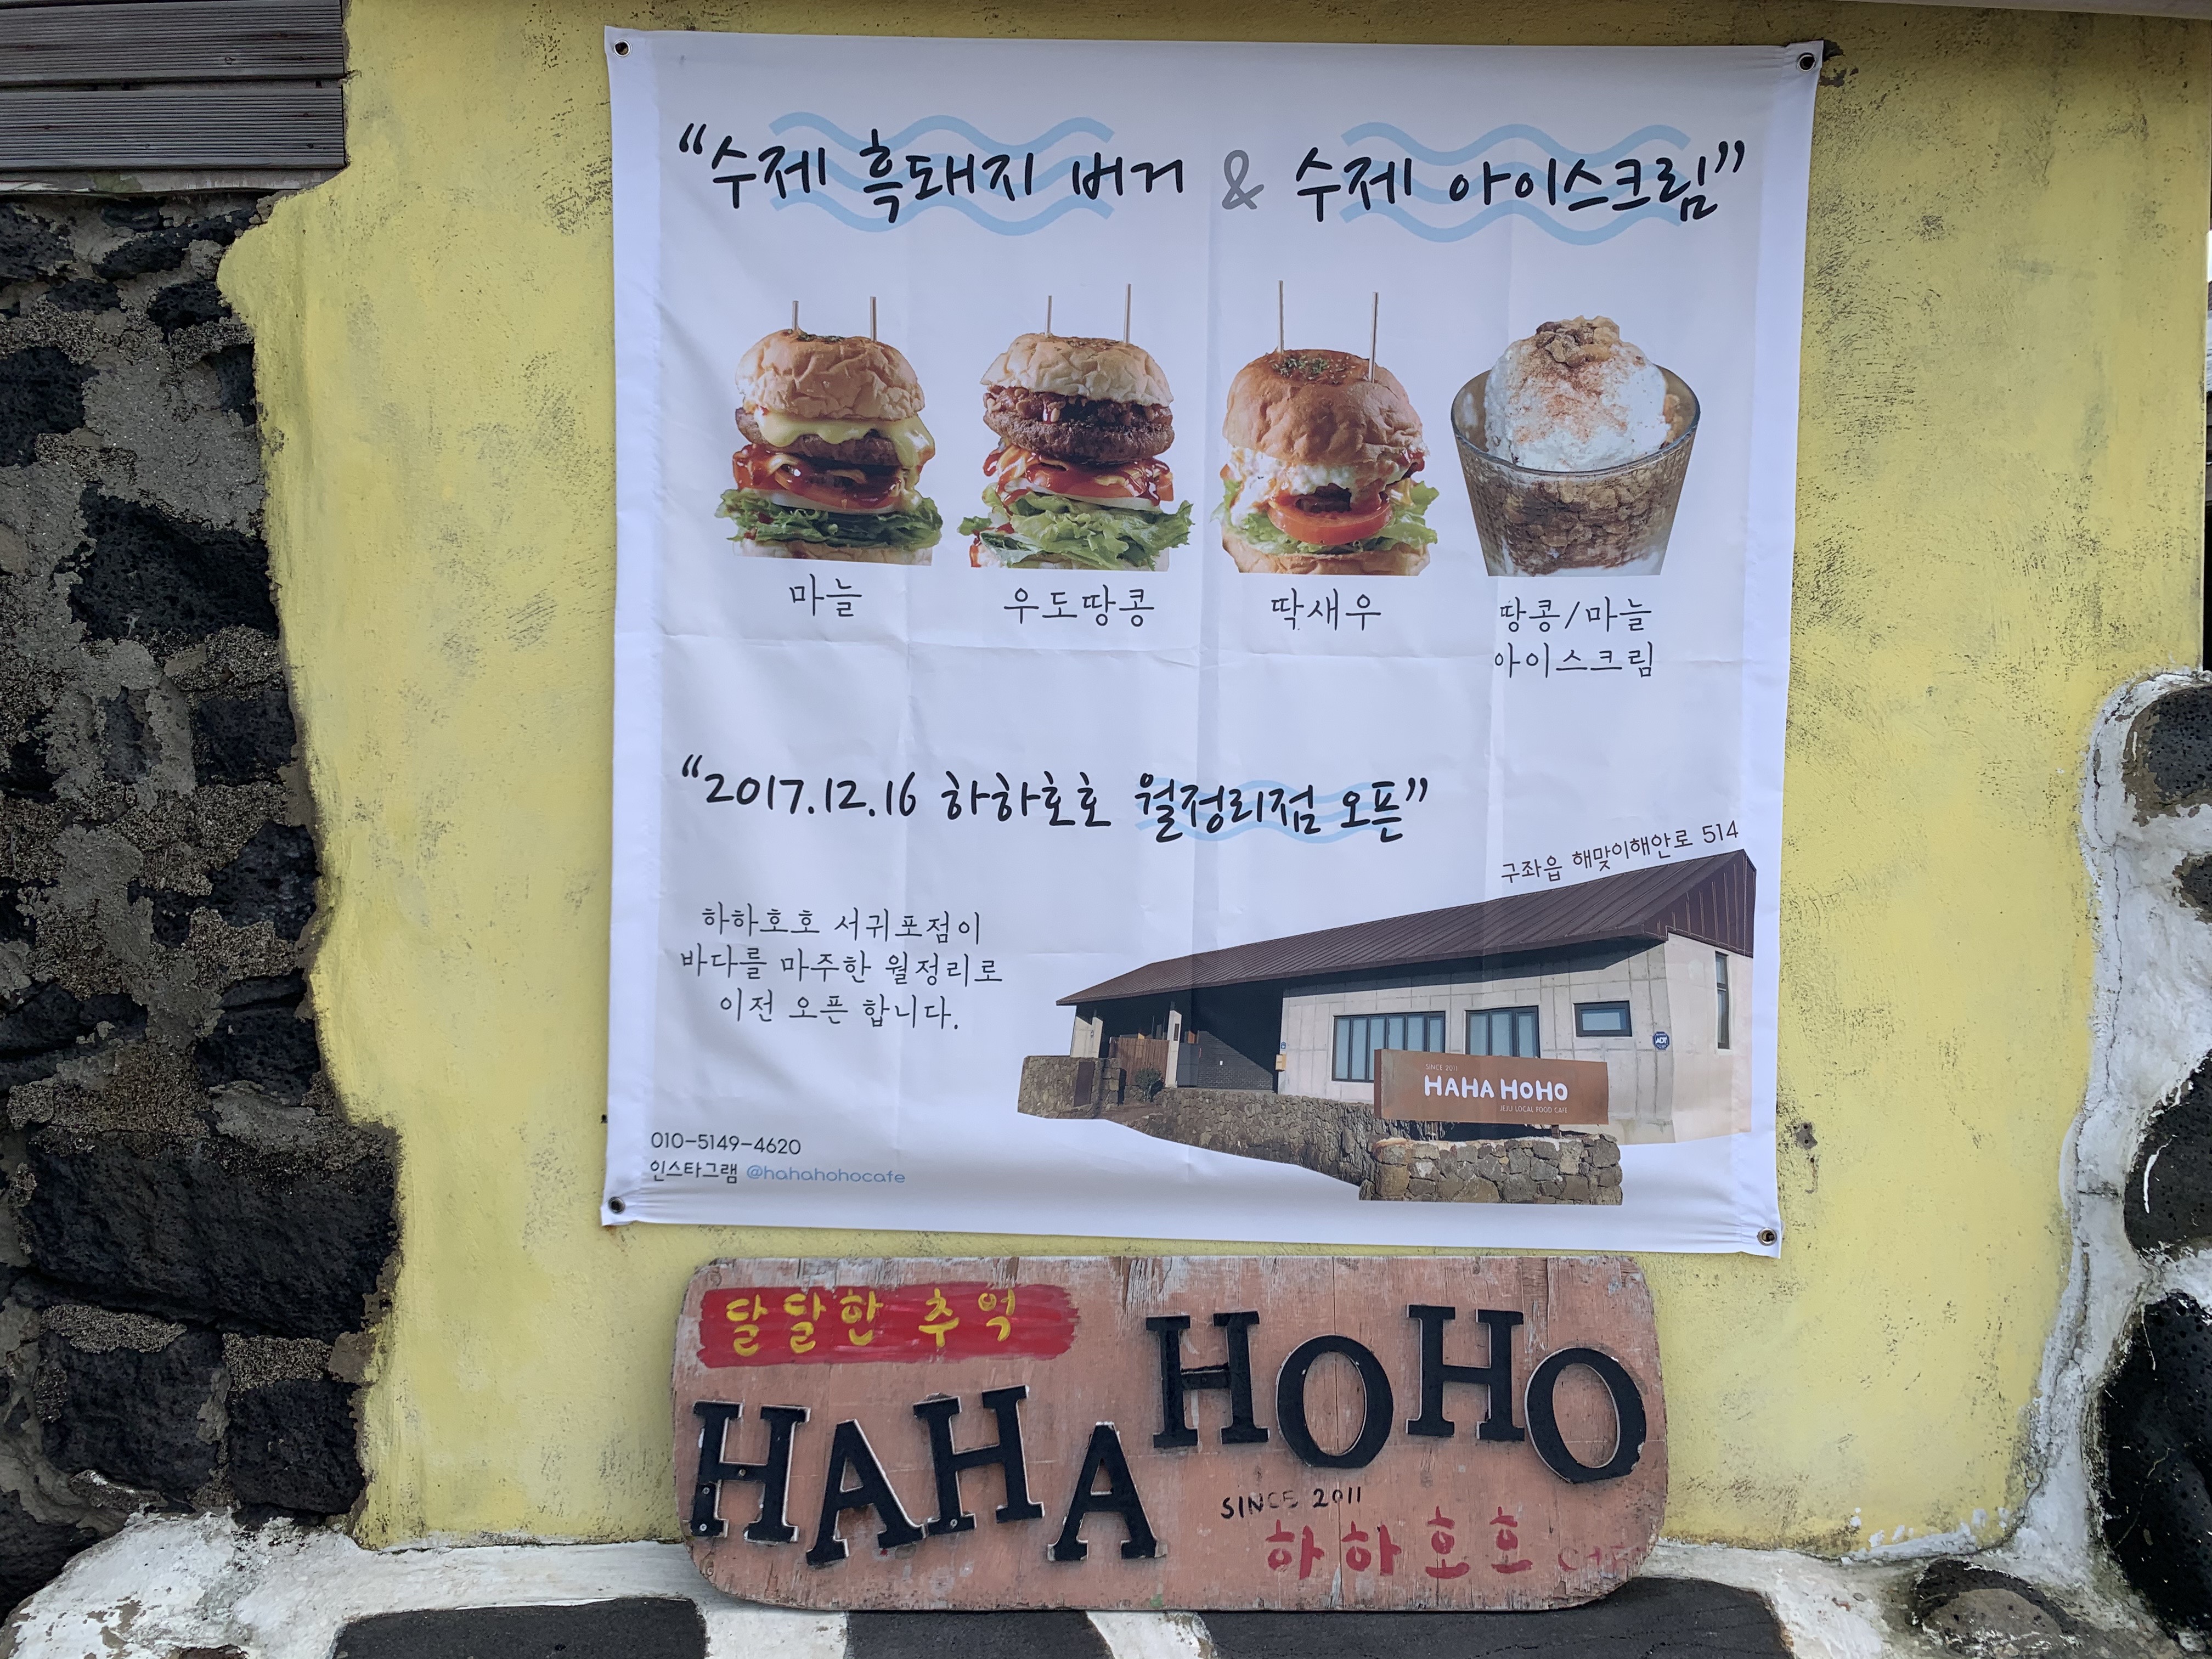 “수제 흑돼지 버거 & 수제 아이스크림”
마늘
우도땅콩
딱새우
땅콩/마늘
아이스크림
“2017.12.16 하하호호 월정리점 오픈”
구좌읍 해맞이해안로 514
하하호호 서귀포점이
바다를 마주한 월정리로
이전 오픈 합니다.
SINCE 2011
HAHA HOHO
JEJU LOCAL FOOD CAFE
ADT
010-5149-4620
인스타그램 @hahahohocafe
달달한 추억
HAHA HOHO
SINCE 2011
하하호호